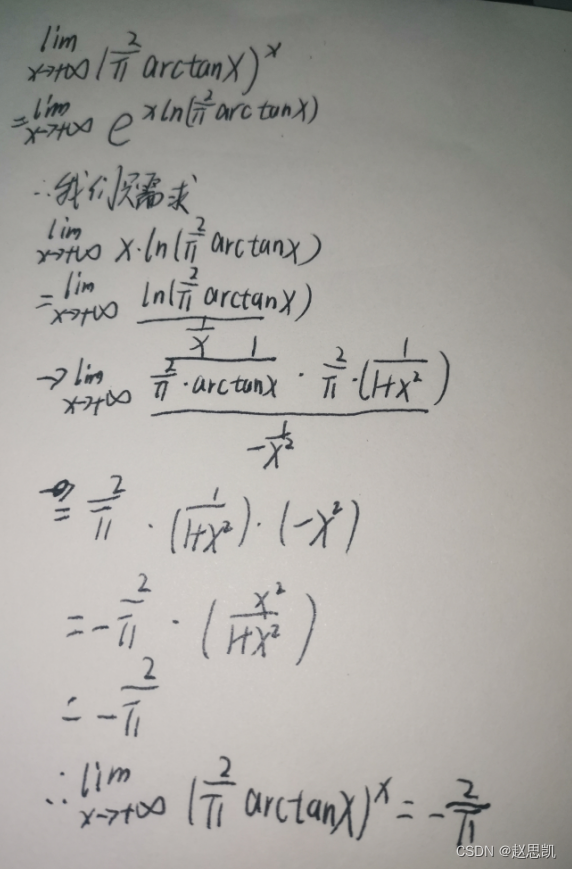 lim x→+∞ (2/π arctanx)^x
= lim x→+∞ e^(xln(2/π arctanx))
∴我们只需求
lim x→+∞ x·ln(2/π arctanx)
= lim x→+∞ ln(2/π arctanx) / (1/x)
→ lim x→+∞ (1/(2/π·arctanx) · 2/π·(1/(1+x²))) / (-1/x²)
= 2/π · (1/(1+x²))·(-x²)
= -2/π · (x²/(1+x²))
= -2/π
∴ lim x→+∞ (2/π arctanx)^x = -2/π
CSDN @赵思凯